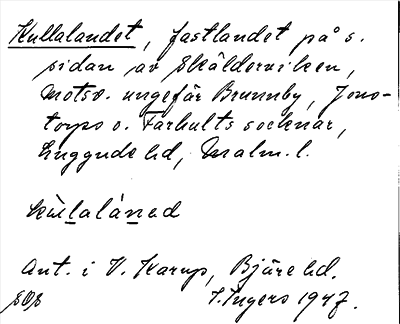 Kullalandet, fastlandet på s.
sidan av Skälderviken,
motsv. ungefär Brunnby, Jons-
torps o. Farhults socknar,
Luggude hd, Malm. l.
kùl̲aláned
Ant. i V. Karup, Bjäre hd.
I. Ingers 1947.